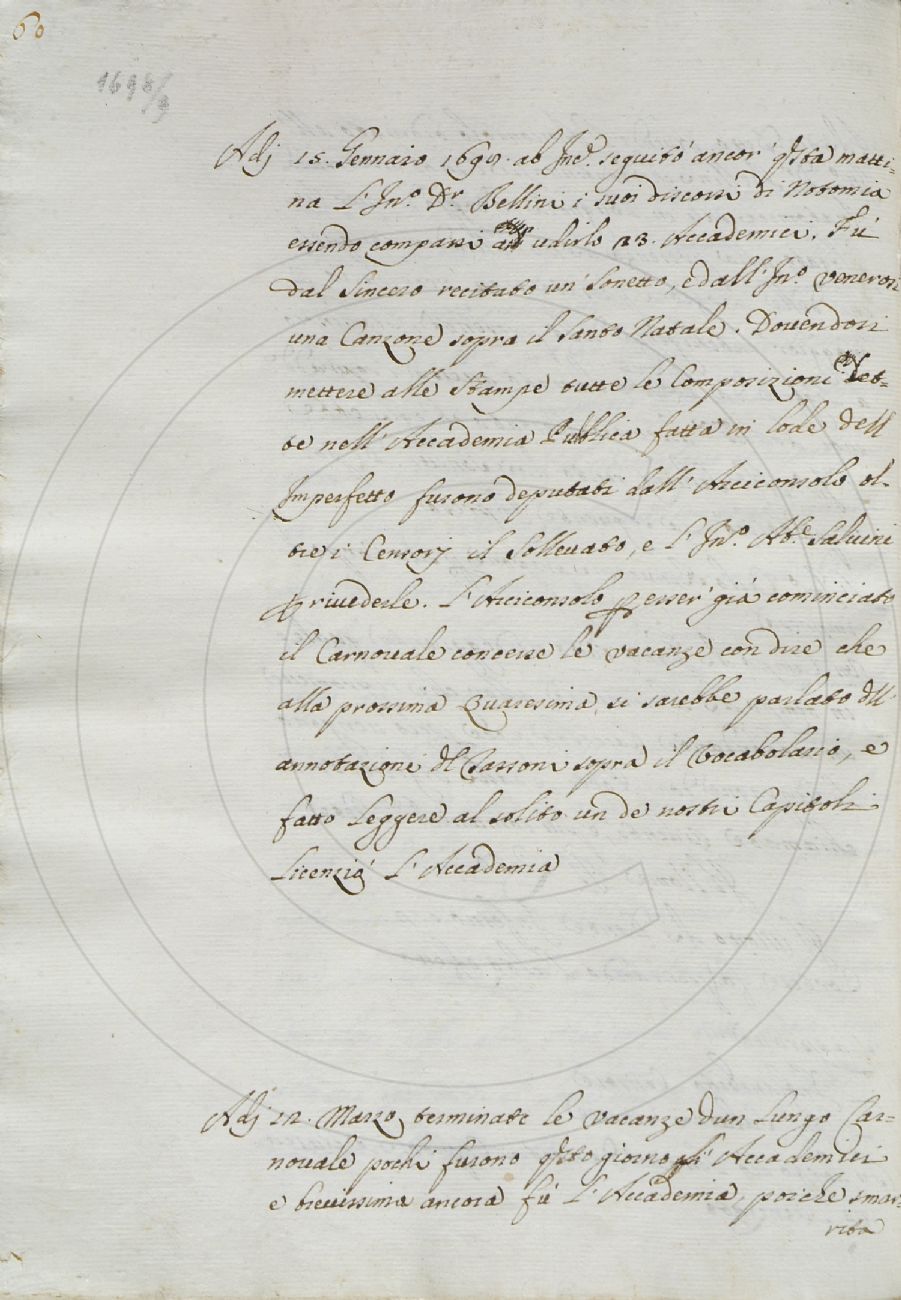 60
1698/9
Adj 15. Gennaro 1699. ab Inc.e seguitò ancor' q̃sta matti-
na l'Inn.o D.r Bellini i suoi discorsi di Notomia
essendo comparsi ad udirlo 23. Accademici. Fù
dal Sincero recitato un' Sonetto, e dall'Inn.o Veneron
una Canzone sopra il Santo Natale. Dovendosi
mettere alle Stampe tutte le Composizioni let-
te nell'Accademia Publica fatta in lode dell
Imperfetto furono deputati dall'Arciconsolo ol-
tre i Censorj il Sollevato, e l'Inn.o Ab.e Salvini
p rivederle. L'Arciconsolo p esser' già cominciato
il Carnovale concesse le vacanze con dire che
alla prossima Quaresima si sarebbe parlato dll'
annotazioni dl Tassoni sopra il Vocabolario, e
fatto Leggere al solito un de nostri Capitoli
Licenziò l'Accademia
Adj 12. Marzo terminate le vacanze d'un Lungo Car-
novale pochi furono q̃sto giorno gl'Accademici
e brevissima ancora fù l'Accademia, poiche smar-
rita